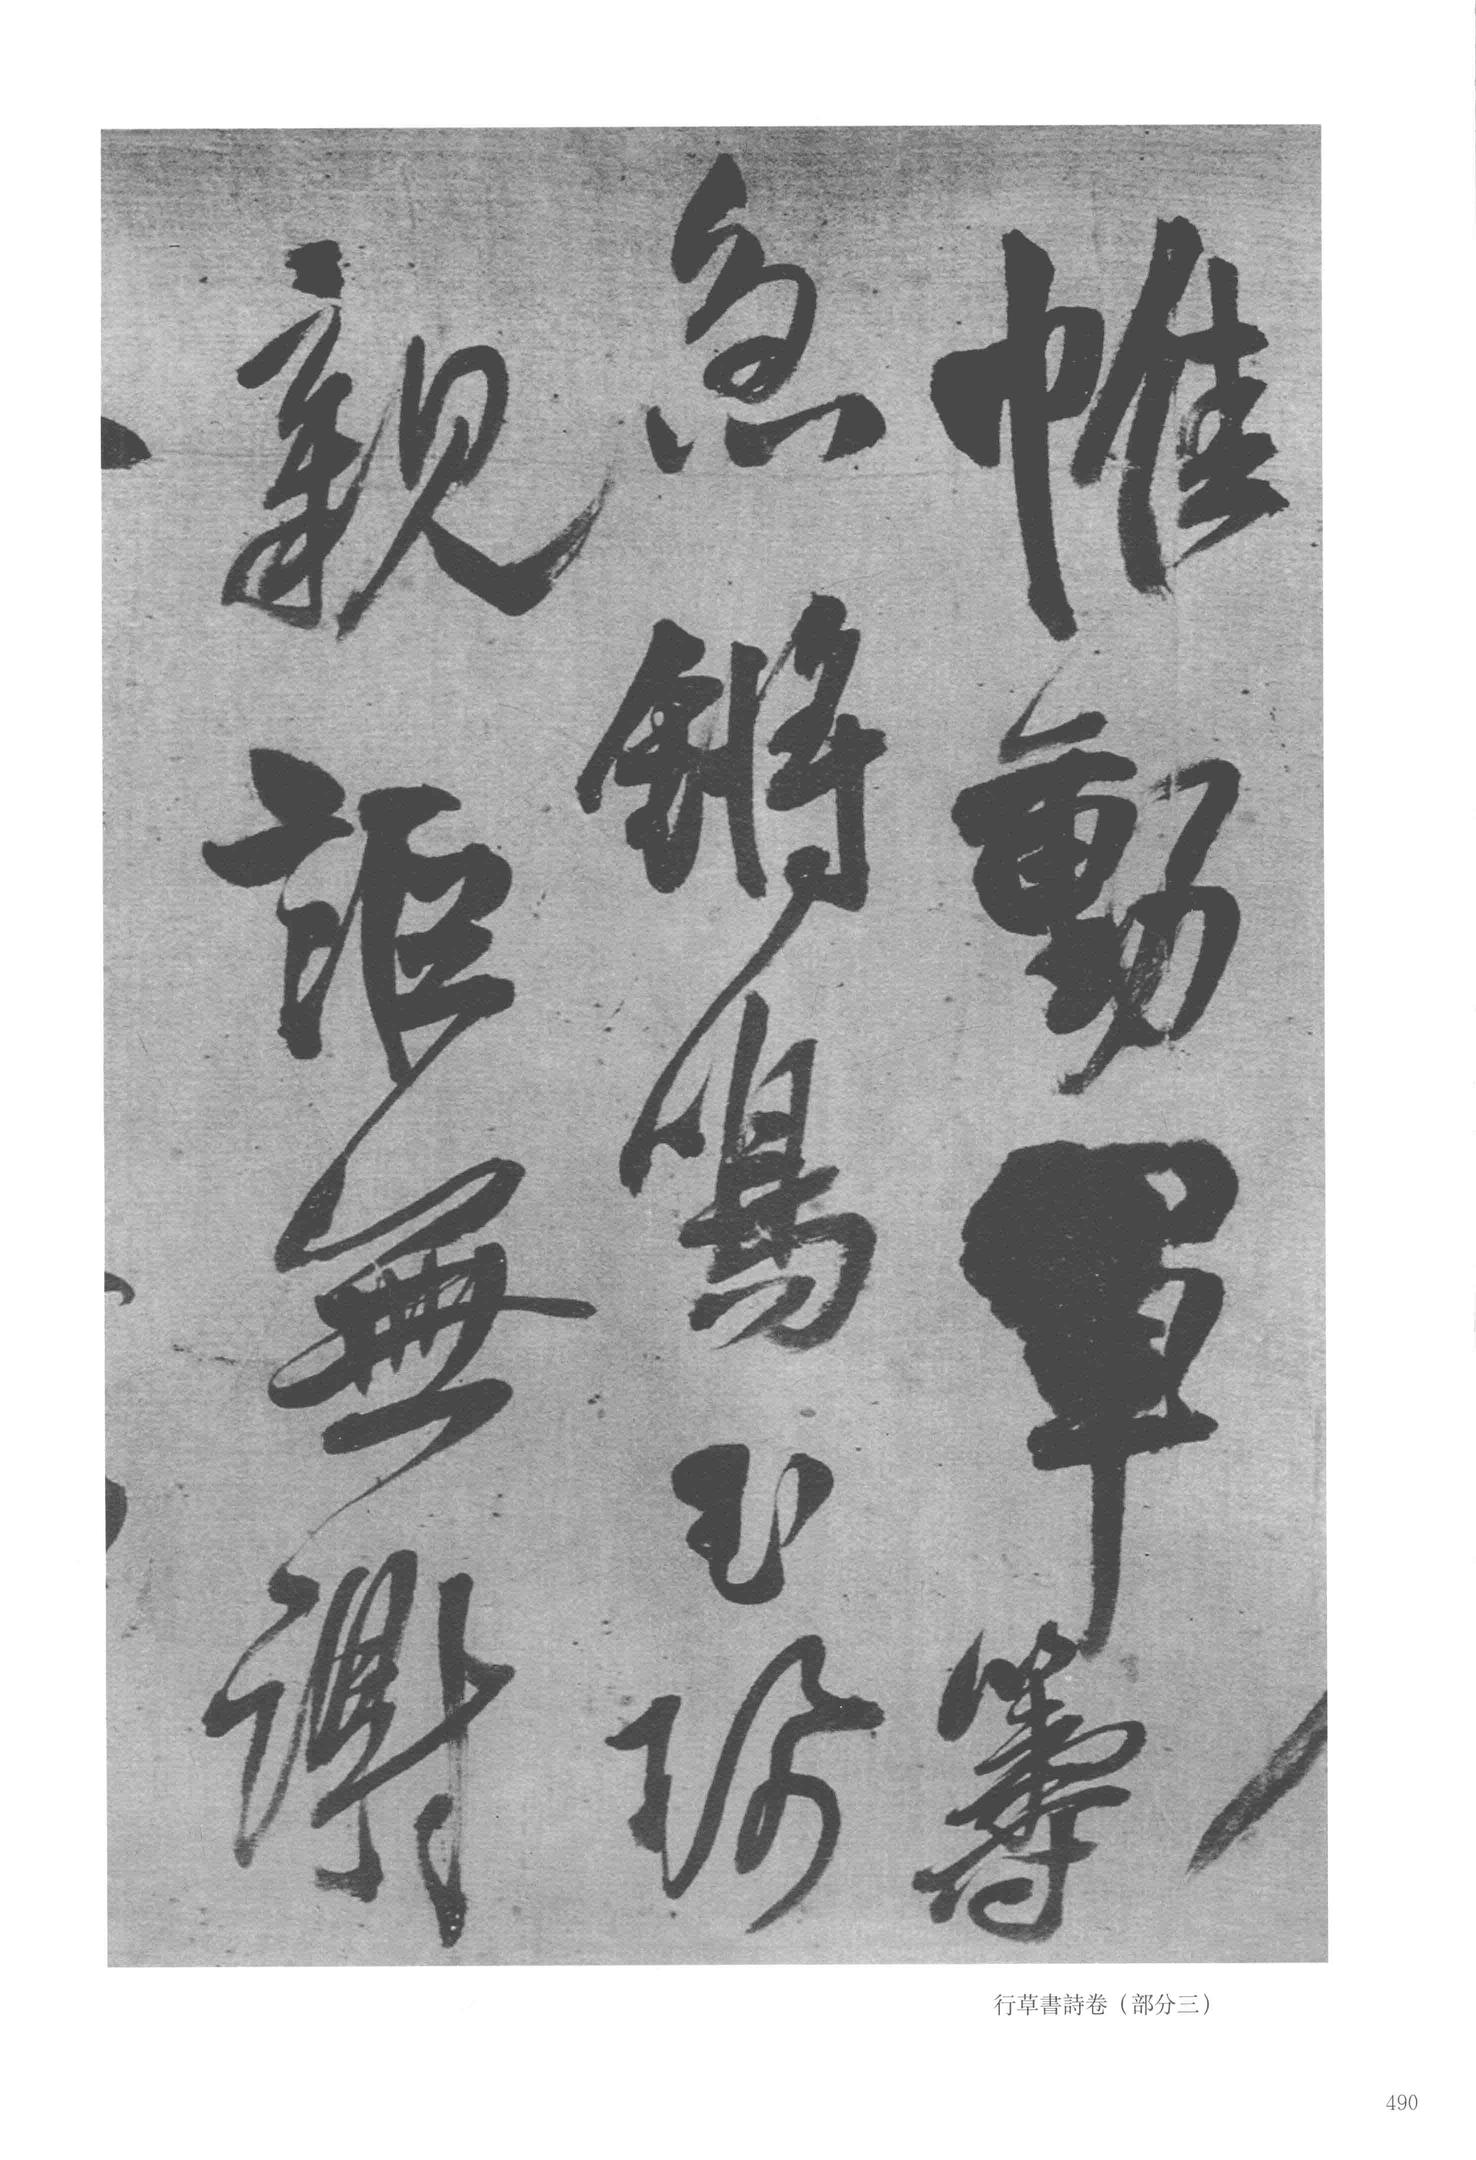 帷動軍籌
急鏘鳴玉珂
親詎無謝
行草書詩卷（部分三）
490